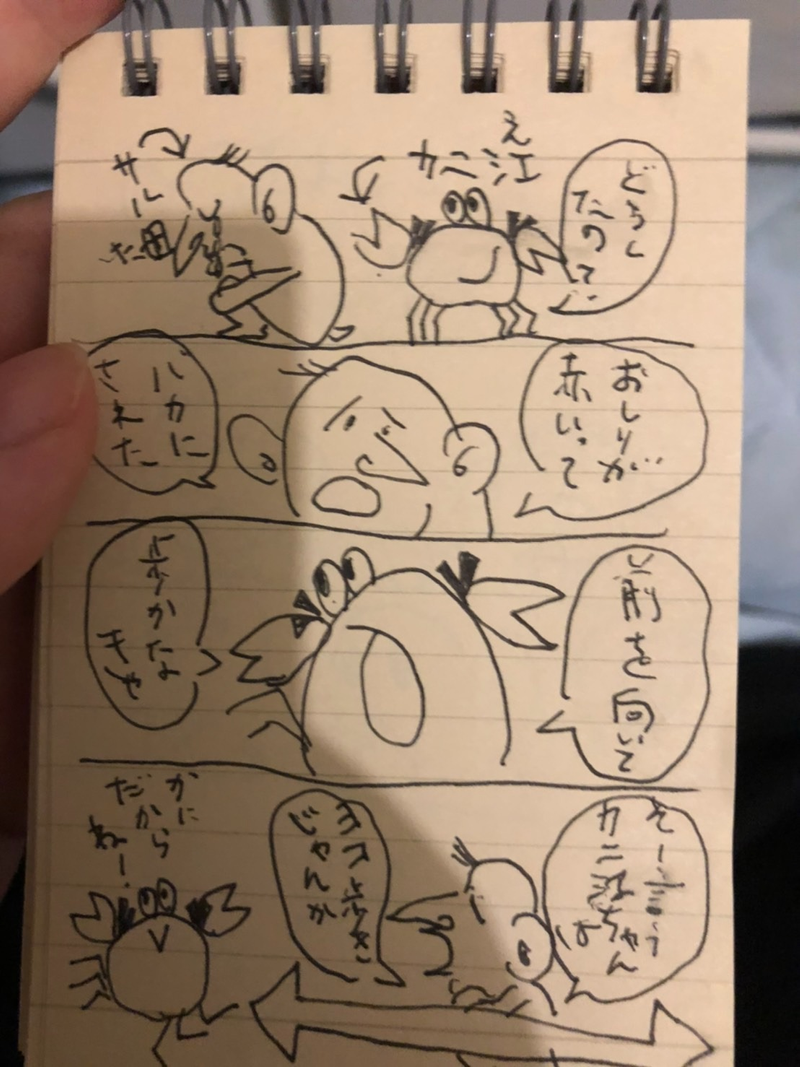 どうし
たのです
え
カニ江
サル
田
おしりが
赤いって
バカに
された
前を向いて
歩かな
きゃ
そー言う
カニ江ちゃん
は
ヨコ歩き
じゃんか
かに
だから
ねー!